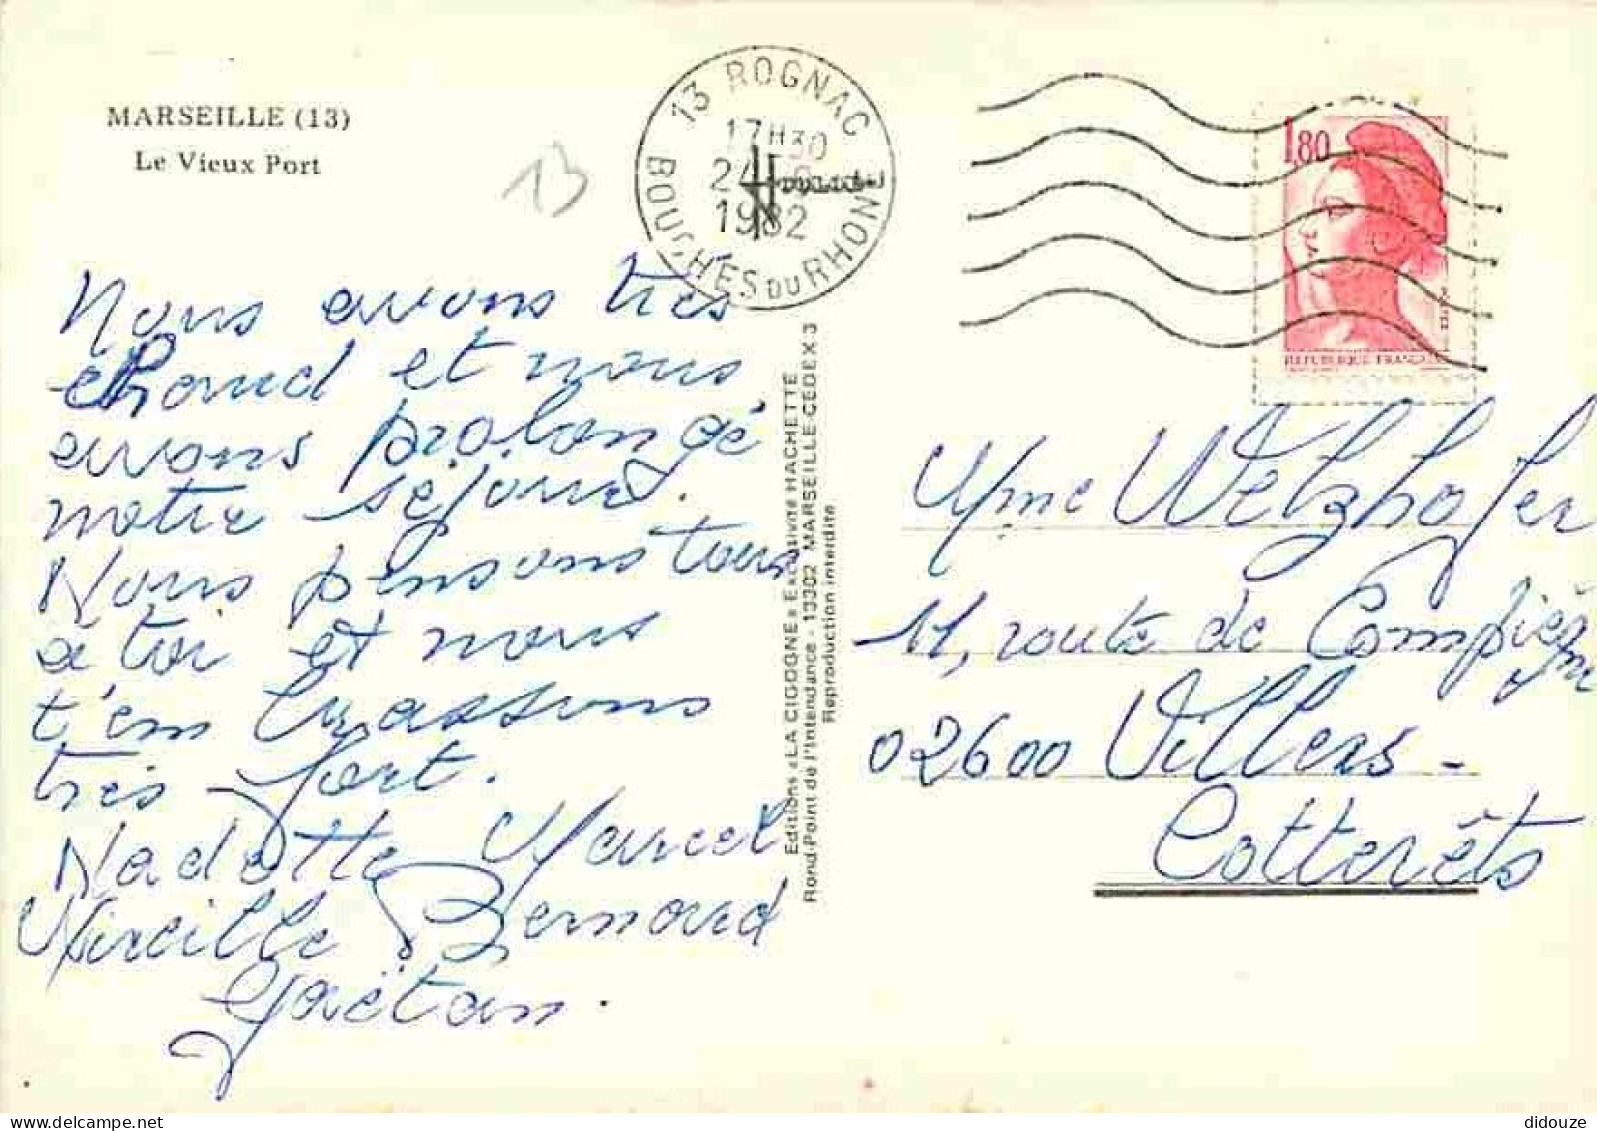 MARSEILLE (13)
Le Vieux Port
13
13 ROGNAC
17H30
24
1982
BOUCHES DU RHONE
1,80
REPUBLIQUE FRANÇAISE
Nous avons très
chaud et nous
avons prolongé
notre séjour.
Nous pensons tous
a toi et nous
t'em brassons
très fort.
Nadette Marcel
Mireille Bernard
Gaëtan.
Editions «LA CIGOGNE» Exclusivité HACHETTE
Rond-Point de l'Intendance - 13302 MARSEILLE-CEDEX 3
Reproduction interdite
Mme Welzhofer
11, route de Compiègne
02600 Villers-
Cotterêts
didouze